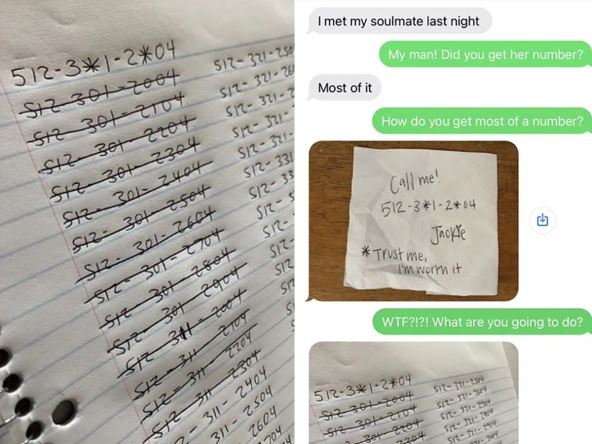 512-3*1-2*04
512-301-2004
512-301-2104
512-301-2204
512-301-2304
512-301-2404
512-301-2504
512-301-2604
512-301-2704
512-301-2804
512-301-2904
512-311-2004
512-311-2104
512-311-2204
512-311-2304
-311-2404
311-2504
2604
512-321-250
512-321-260
512-321-2
512-321-
512-321-
512-331
512-33
I met my soulmate last night
My man! Did you get her number?
Most of it
How do you get most of a number?
Call me!
512-3*1-2*04
Jackie
*Trust me,
I'm worth it
WTF?!?! What are you going to do?
512-3*1-2*04
512-301-2004
512-301-2104